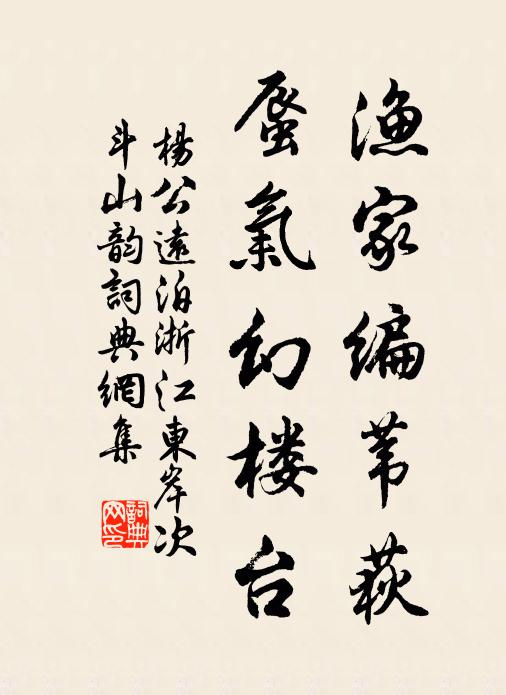 渔家编苇荻
蜃氣幻楼台
楊公遠泊浙江東岸次
斗山韵詞典網集
詞典网印